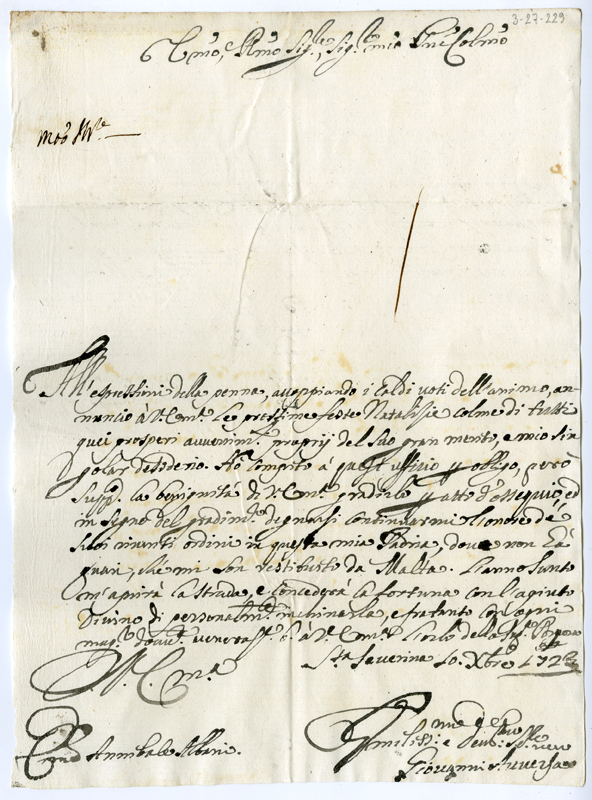 3-27-229
Em̃o, e Rm̃o Sig.re, Sig.r mio P̃ne Colm̃o
All'espressioni della penna, accoppiando i caldi voti dell'animo, an-
nuncio à V. Em.za le pross̃ime feste Natalizie colme di tutti
quei prosperi avvenim.ti proprij del suo gran merito, e mio sin
golar desiderio. Hò compito a quest'uffizio obligo, però
supp.co la benignità di V. Em.za gradirlo atto d'ossequio, ed
in segno del gradim.to degnarsi continuarmi l'onore de
suoi riveriti ordini in questa mia Padria, dove non hà
guari, che mi son restituito da Malta. L'anno
m'aprirà la strada, e concederà la fortuna con l'agiuto
Divino di personalm.te inchinarla, e fratanto con ogni
mag.r à V. Em.za l'orlo della
S.ta Severina 10. Xbre 172
D. V. Em.za
Em̃o Annibale Albani.
Umiliss.o e Dev.mo
Giovanni